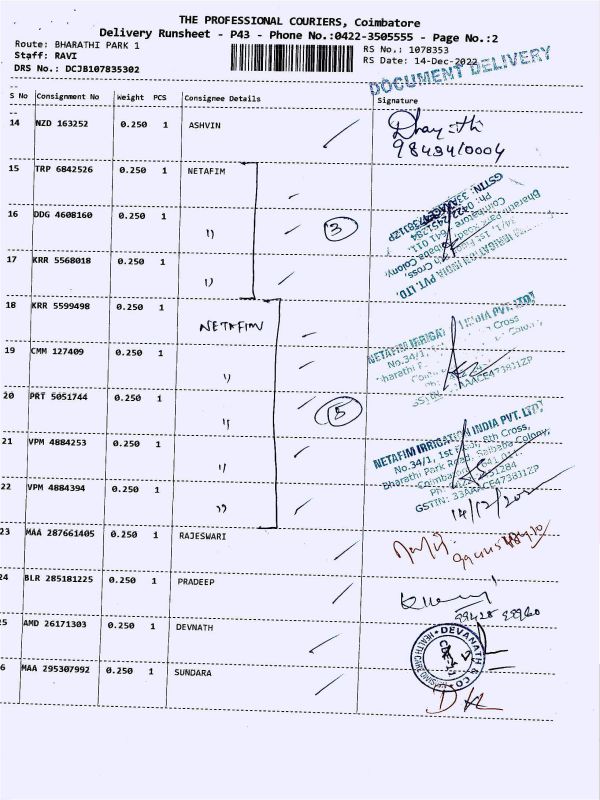 THE PROFESSIONAL COURIERS, Coimbatore
Delivery Runsheet - P43 - Phone No.:0422-3505555 - Page No.:2
Route: BHARATHI PARK 1
RS No.: 1078353
Staff: RAVI
RS Date: 14-Dec-2022
DRS No.: DCJB107835302
DOCUMENT DELIVERY
S No Consignment No Weight PCS Consignee Details Signature
14 NZD 163252 0.250 1 ASHVIN
9843410004
15 TRP 6842526 0.250 1 NETAFIM
16 DDG 4608160 0.250 1 " 3
17 KRR 5568018 0.250 1 "
NETAFIM IRRIGATION INDIA PVT. LTD.
18 KRR 5599498 0.250 1 NETAFIM
19 CMM 127409 0.250 1 "
20 PRT 5051744 0.250 1 " 5
21 VPM 4884253 0.250 1 "
22 VPM 4884394 0.250 1 "
NETAFIM IRRIGATION INDIA PVT. LTD.
No.34/1, 1st Floor, 8th Cross,
Bharathi Park Road, Saibaba Colony,
Coimbatore - 641 011.
GSTIN: 33AAACE4738J1ZP
14/12/2022
23 MAA 287661405 0.250 1 RAJESWARI
24 BLR 285181225 0.250 1 PRADEEP
25 AMD 26171303 0.250 1 DEVNATH
DEVANATH & CO
6 MAA 295307992 0.250 1 SUNDARA